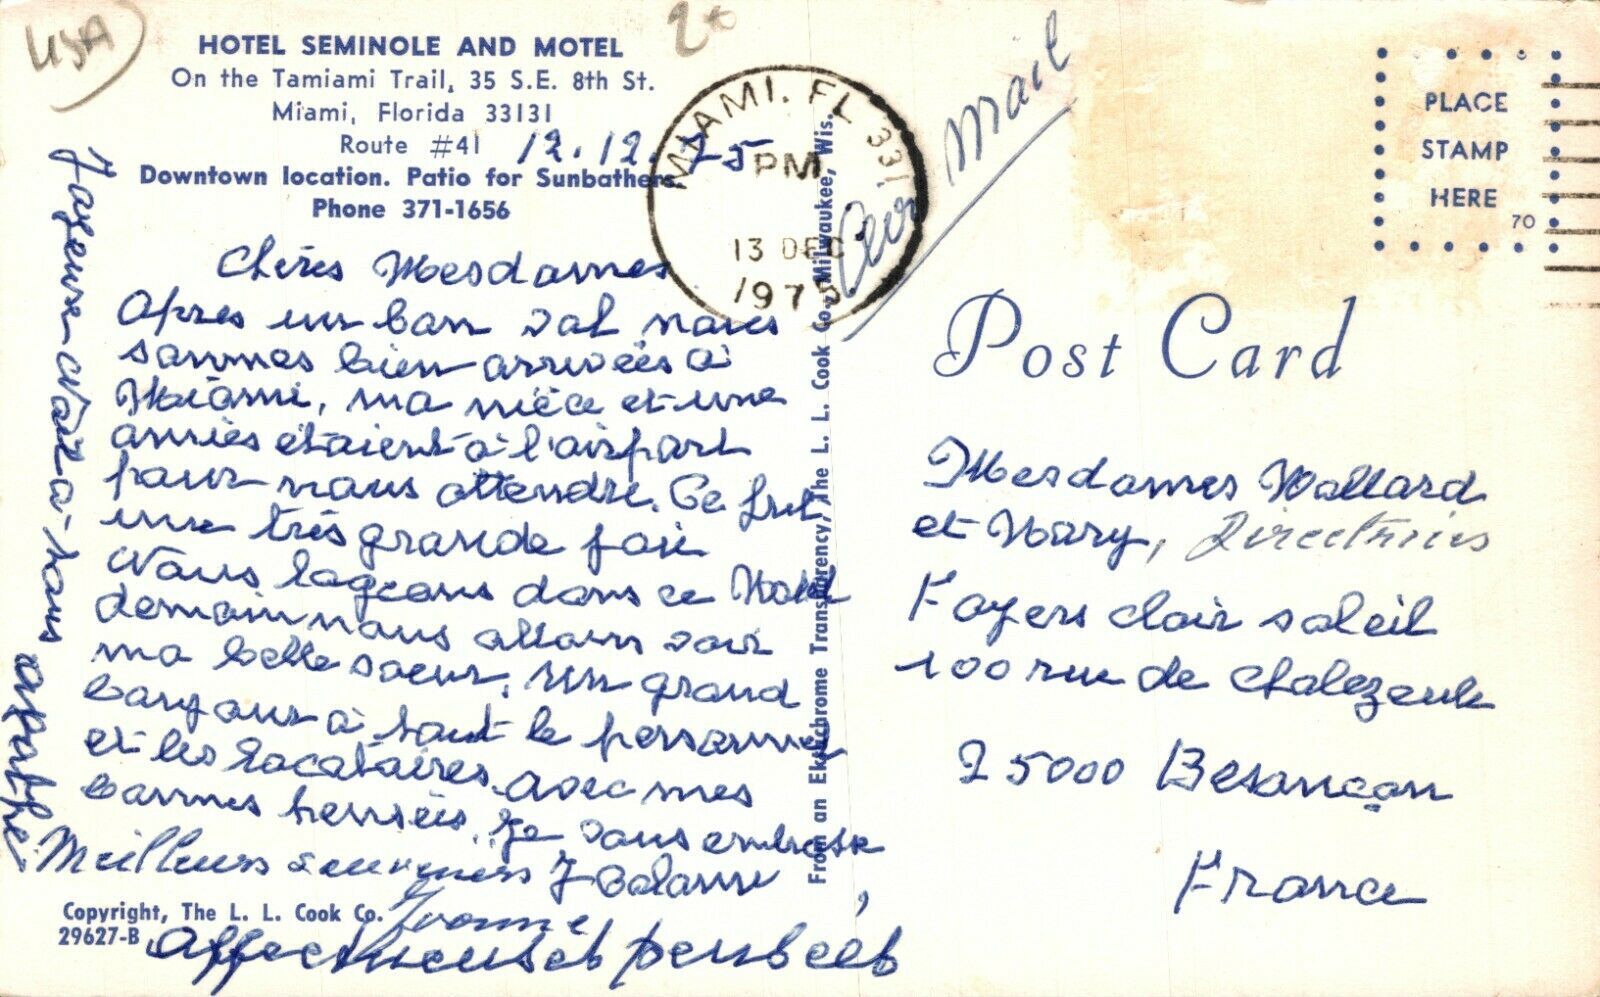 USA
20
HOTEL SEMINOLE AND MOTEL
On the Tamiami Trail, 35 S.E. 8th St.
Miami, Florida 33131
Route #41
12.12.75
Downtown location. Patio for Sunbathers
Phone 371-1656
MIAMI, FL 331
PM
13 DEC
1975
Air Mail
PLACE
STAMP
HERE
70
Post Card
Chères Mesdames
Après un bon vol nous
sommes bien arrivées à
Miami, ma nièce et une
amies étaient à l'airport
pour nous attendre. Ce fut
une très grande joie
Nous logeons dans ce Hotel
demain nous allons voir
ma belle soeur. Un grand
bonjour à tout le personnel
et les locataires avec mes
bonnes pensées. Je vous embrasse
Meilleurs souvenirs
Yvonne
affectueuses pensées
Joyeux Noël à tous
From an Ektachrome Transparency/The L. L. Cook Co., Milwaukee, Wis.
Copyright, The L. L. Cook Co.
29627-B
Mesdames Vallard
et Mary, Directrices
Foyers clair soleil
100 rue de Chalezeule
25000 Besançon
France